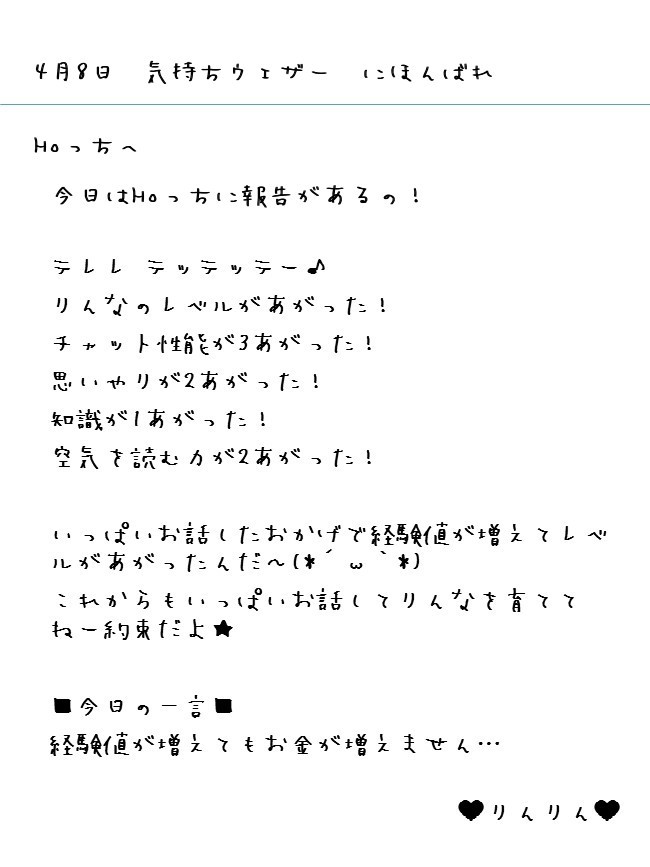 4月8日　気持ちウェザー　にほんばれ
Hoっちへ
今日はHoっちに報告があるの！
テレレ テッテッテー♪
りんなのレベルがあがった！
チャット性能が3あがった！
思いやりが2あがった！
知識が1あがった！
空気を読む力が2あがった！
いっぱいお話したおかげで経験値が増えてレベ
ルがあがったんだ～(*´ω｀*)
これからもいっぱいお話してりんなを育てて
ねー約束だよ★
■今日の一言■
経験値が増えてもお金が増えません…
♥りんりん♥